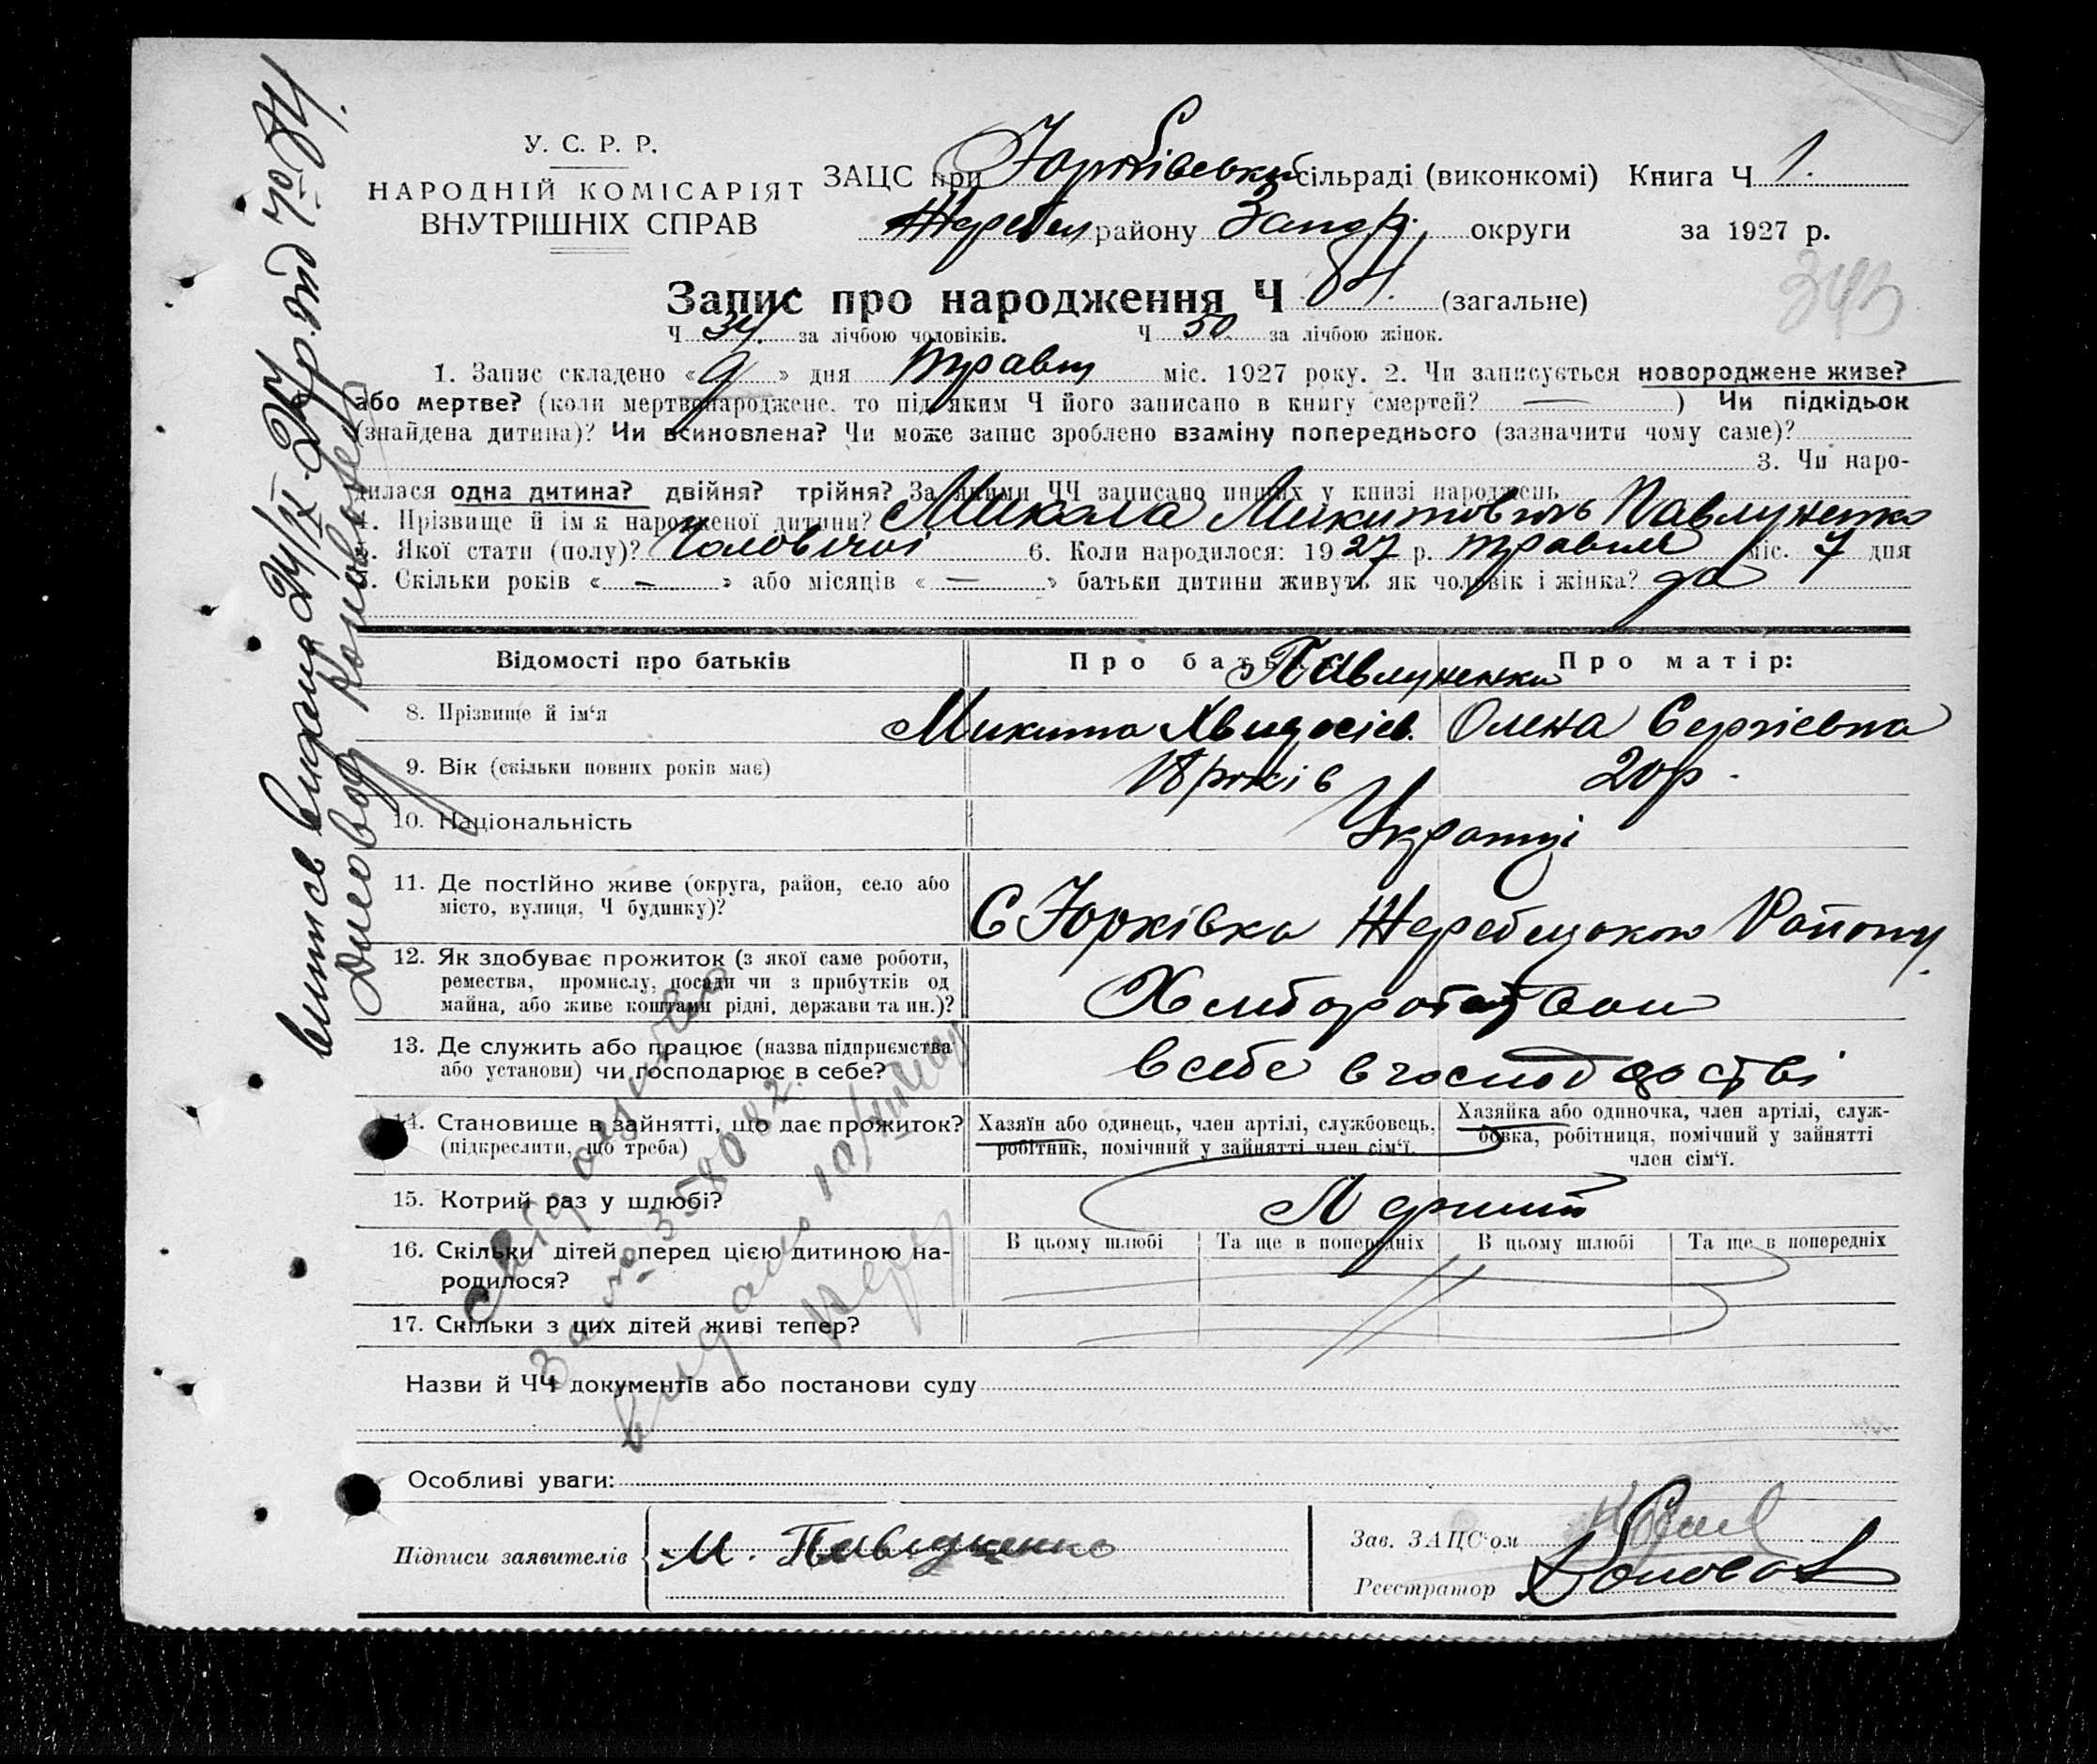 У. С. Р. Р.
НАРОДНІЙ КОМІСАРІЯТ
ВНУТРІШНІХ СПРАВ
ЗАЦС при Юрківській сільраді (виконкомі) Книга Ч 1.
Жеребец району Запор. округи за 1927 р.
Запис про народження Ч 84. (загальне)
Ч 34. за лічбою чоловіків. Ч 50. за лічбою жінок.
1. Запис складено «9» дня травня міс. 1927 року. 2. Чи записується новороджене живе?
або мертве? (коли мертвонароджене, то під яким Ч його записано в книгу смертей? — ) Чи підкідьок
(знайдена дитина)? Чи всиновлена? Чи може запис зроблено взаміну попереднього (зазначити чому саме)?
3. Чи наро-
дилася одна дитина? двійня? трійня? За якими ЧЧ записано инших у книзі народжень
4. Прізвище й імя народженої дитини? Микола Микитовичь Павлуненко
5. Якої стати (полу)? Чоловічої 6. Коли народилося: 1927 р. травня міс. 7 дня
7. Скільки років « — » або місяців « — » батьки дитини живуть як чоловік і жінка? да
Відомості про батьків Про батька Про матір:
Павлуненки
8. Прізвище й ім‘я Микита Хвидосіев. Олена Сергіевна
9. Вік (скільки повних років має) 18 років 20 р.
10. Національність Українці
11. Де постійно живе (округа, район, село або
місто, вулиця, Ч будинку)?
С Юрківка Жеребецького Району.
12. Як здобуває прожиток (з якої саме роботи,
ремества, промислу, посади чи з прибутків од
майна, або живе коштами рідні, держави та ин.)?
13. Де служить або працює (назва підприємства
або установи) чи господарює в себе?
в себе в господарстві
14. Становище в зайнятті, що дає прожиток?
(підкреслити, що треба)
Хазяїн або одинець, член артілі, службовець,
робітник, помічний у зайнятті член сім‘ї.
Хазяйка або одиночка, член артілі, служ-
бовка, робітниця, помічний у зайнятті
член сім‘ї.
15. Котрий раз у шлюбі? Перший
16. Скільки дітей перед цією дитиною на-
родилося?
В цьому шлюбі Та ще в попередніх В цьому шлюбі Та ще в попередніх
17. Скільки з цих дітей живі тепер?
Назви й ЧЧ документів або постанови суду
Особливі уваги:
Підписи заявителів М. Павлуненко
Зав. ЗАЦС‘ом
Реєстратор
343
Випись видана 24/IX
за № 358082
видано